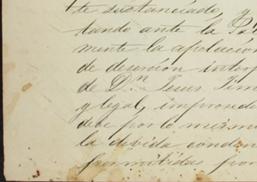 te sustanciado, y
tando ante la
mente la apelación
de desercion inter
de Dn Jesus
y legal, improced
debe por lo mismo
la debida conden
permitidas por